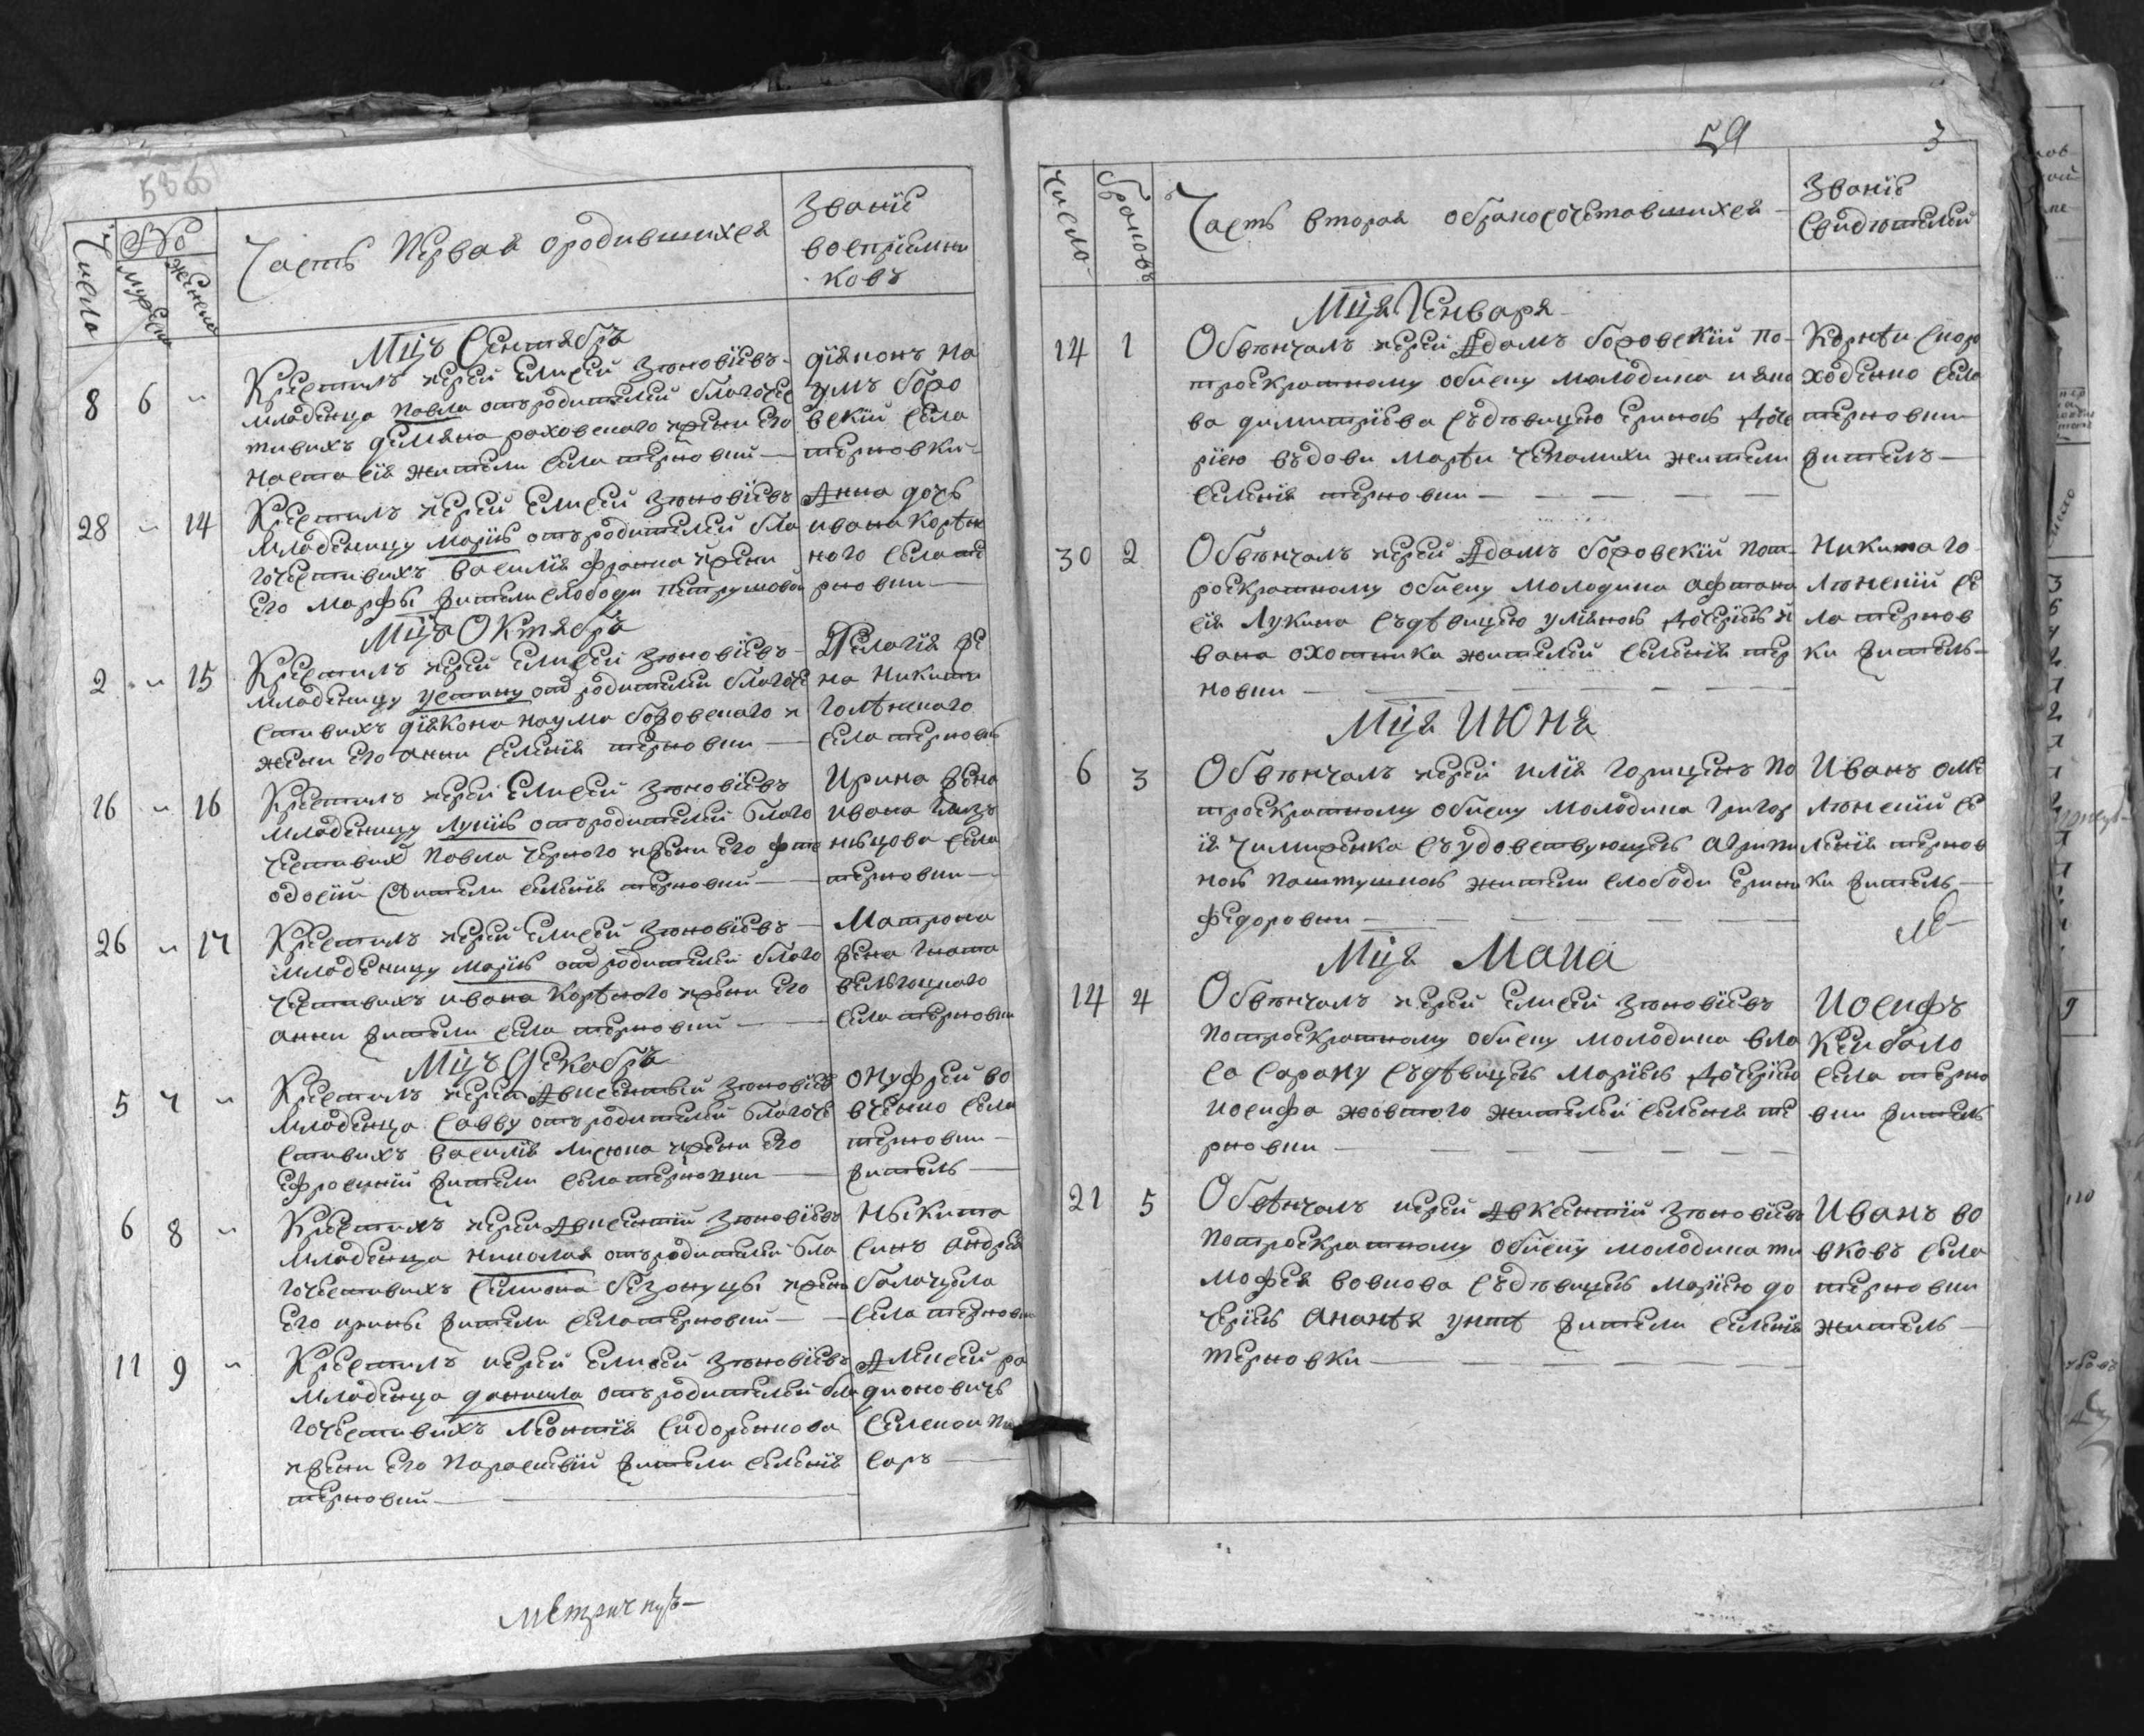 58 об
Числа
№
Мужеска
Женска
Часть Первая ородившихся
Званїе
воспрїемни
ковъ
Мцъ Сентябръ
8 6 "
Крестилъ иерей Елисей Зѣновїевъ
младенца Павла отъ родителей благочес
тивихъ Демяна раховского и жени его
Настасїя жители села терновки
Дїяконъ На
умъ боро
вскїй села
терновки
28 " 14
Крестилъ иерей Елисей Зѣновїевъ
Младеницу Марїю отъ родителей бла
гочестивихъ Василїя Франка и жени
его Марфы жители слободи петрушовой
Анна дочь
ивана корѣн
ного села те
рновки
Мця Октябръ
2 " 15
Крестилъ иерей Елисей Зѣновїевъ
Младеницу устину отъ родителей благоче
стивихъ дїякона наума боровского и
жени его анни селенїя терновки
Пелагїя же
на Никити
голѣнского
села терновки
16 " 16
Крестилъ иерей Елисей Зѣновїевъ
младеницу Лукїю отъ родителей благо
честивих Павла Черного и жени его фте
одосїи жители селенїя терновки
Ирина жена
ивана
села
терновки
26 " 17
Крестилъ иерей Елисей Зѣновїевъ
младеницу Марїю отъ родителей благо
честивихъ ивана корѣного и жени его
анни жители села терновки
Матрона
жена игната
села терновки
Мцъ Декабръ
5 7 "
Крестилъ иерей Авксентїй Зѣновїев
Младенца Савву отъ родителей благоче
стивихъ василїя лисюка и жени его
Ефросинїй жители села терновки
Онуфрей во
вченко села
терновки
житель
6 8 "
Крестилъ иерей Авксентїй Зѣновїевъ
младенца николая отъ родителей бла
гочестивихъ Симиона безкоуцы и жени
его ирины жители села терновки
Ныкита
синъ андрея
балацила
села терновки
11 9 "
Крестилъ иерей Елисей Зѣновїевъ
Младенца данила отъ родителей бла
гочестивихъ Леонтїя Сидоренкова
и жени его Параскевїи жители селенїя
терновки
Алексей ра
дионовичъ
селской пи
саръ
Метрич
59 3
Число
браковъ
Часть вторая обракосочетавшихся
Званїе
свидѣтелей
Мця Генваря
14 1
Обвѣнчалъ иерей Адамъ боровскїй по
троекратному обиску молодика ияко
ва димитрїева съ дѣвицею Ериною доче
рїею въдови Марѣи чепалихи жители
селенїя терновки
Корнѣи скор
ходенко села
терновки
житель
30 2
Обвѣнчалъ иерей Адамъ боровскїй пот
роекратному обиску молодика афтана
сїя Лукина съ дѣвицею улїяною дочерїю и
вана охотника жителей селенїя тер
новки
Никита го
люнскїй се
ла тернов
ки житель
Мця ИЮНя
6 3
Обвѣнчалъ иерей илїя горицынъ по
троекратному обиску молодика григор
їя чимиренка съ удовствующею агрипи
ною паштушною жители слободи Ерино
федоровки
Иванъ оме
люнскїй се
ленїя тернов
ки житель
Мця Маиа
14 4
Обвѣнчалъ иерей Елисей Зѣновїевъ
потроекратному обиску молодика вла
са сараку съ дѣвицею Марїею дочерїею
иосифа жовтого жителей селенїя те
рновки
Иосифъ
Кисбало
села терно
вки житель
21 5
Обвѣнчалъ иерей Авксентїй Зѣновїевъ
потроекратному обиску молодика ти
мофея вовкова съ дѣвицею Марїею до
черїею Ананѣя унтѣ жители селенїя
терновки
Иванъ во
вковъ села
терновки
житель